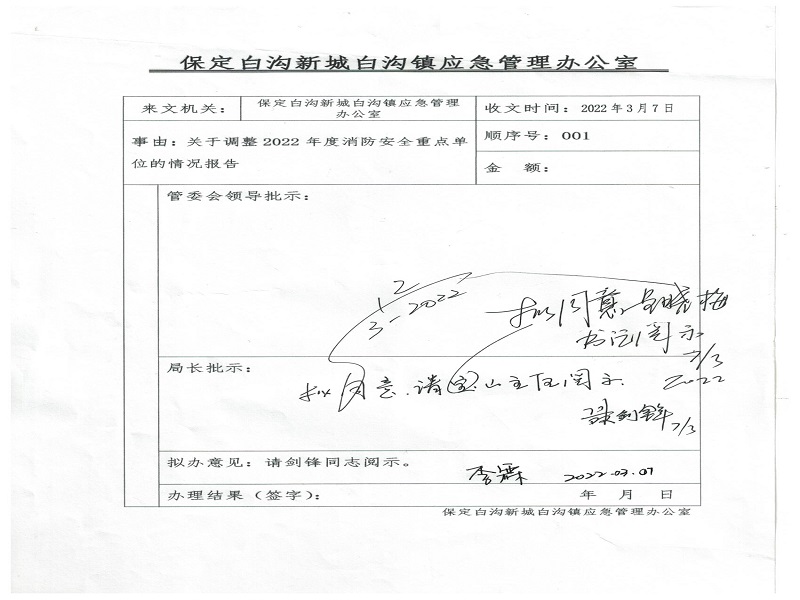 保定白沟新城白沟镇应急管理办公室
来文机关：
保定白沟新城白沟镇应急管理
办公室
收文时间：2022年3月7日
事由：关于调整2022年度消防安全重点单
位的情况报告
顺序号：001
金 额：
管委会领导批示：
3-2022
拟同意.呈晓梅
书记阅示
7/3
2022
局长批示：
拟同意.请宝山主任阅示.
剑锋
7/3
拟办意见：请剑锋同志阅示。
李霖 2022.03.07
办理结果（签字）：
年 月 日
保定白沟新城白沟镇应急管理办公室